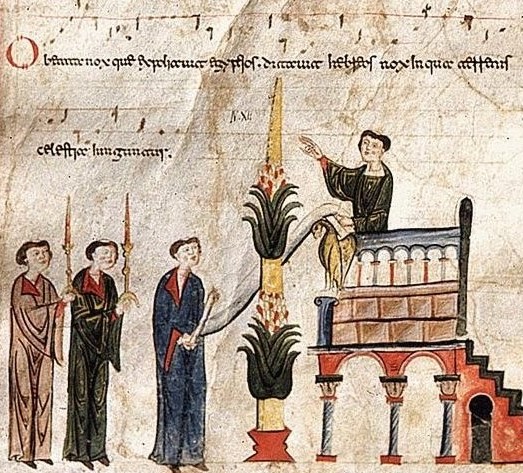 O beata nox que expoliauit egyptios. ditauit hebreos nox In qua terrenis
celestia Iunguntur.